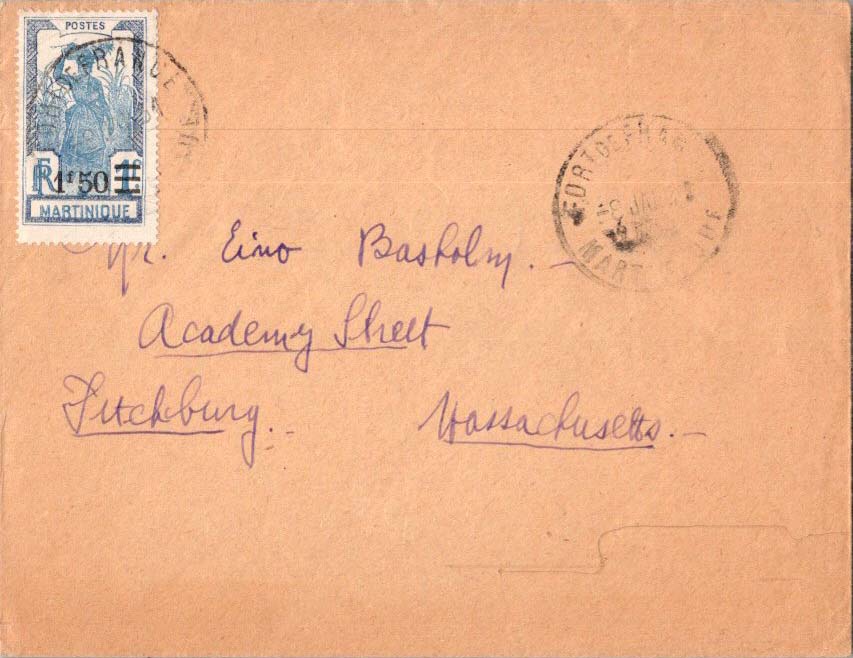 POSTES
RF 1F
1F50
MARTINIQUE
FORT DE FRANCE
FORT DE FRAN
JAN
MART
Mr. Eino Basholm. —
Academy Street
Fitchburg.
Massachusetts. —